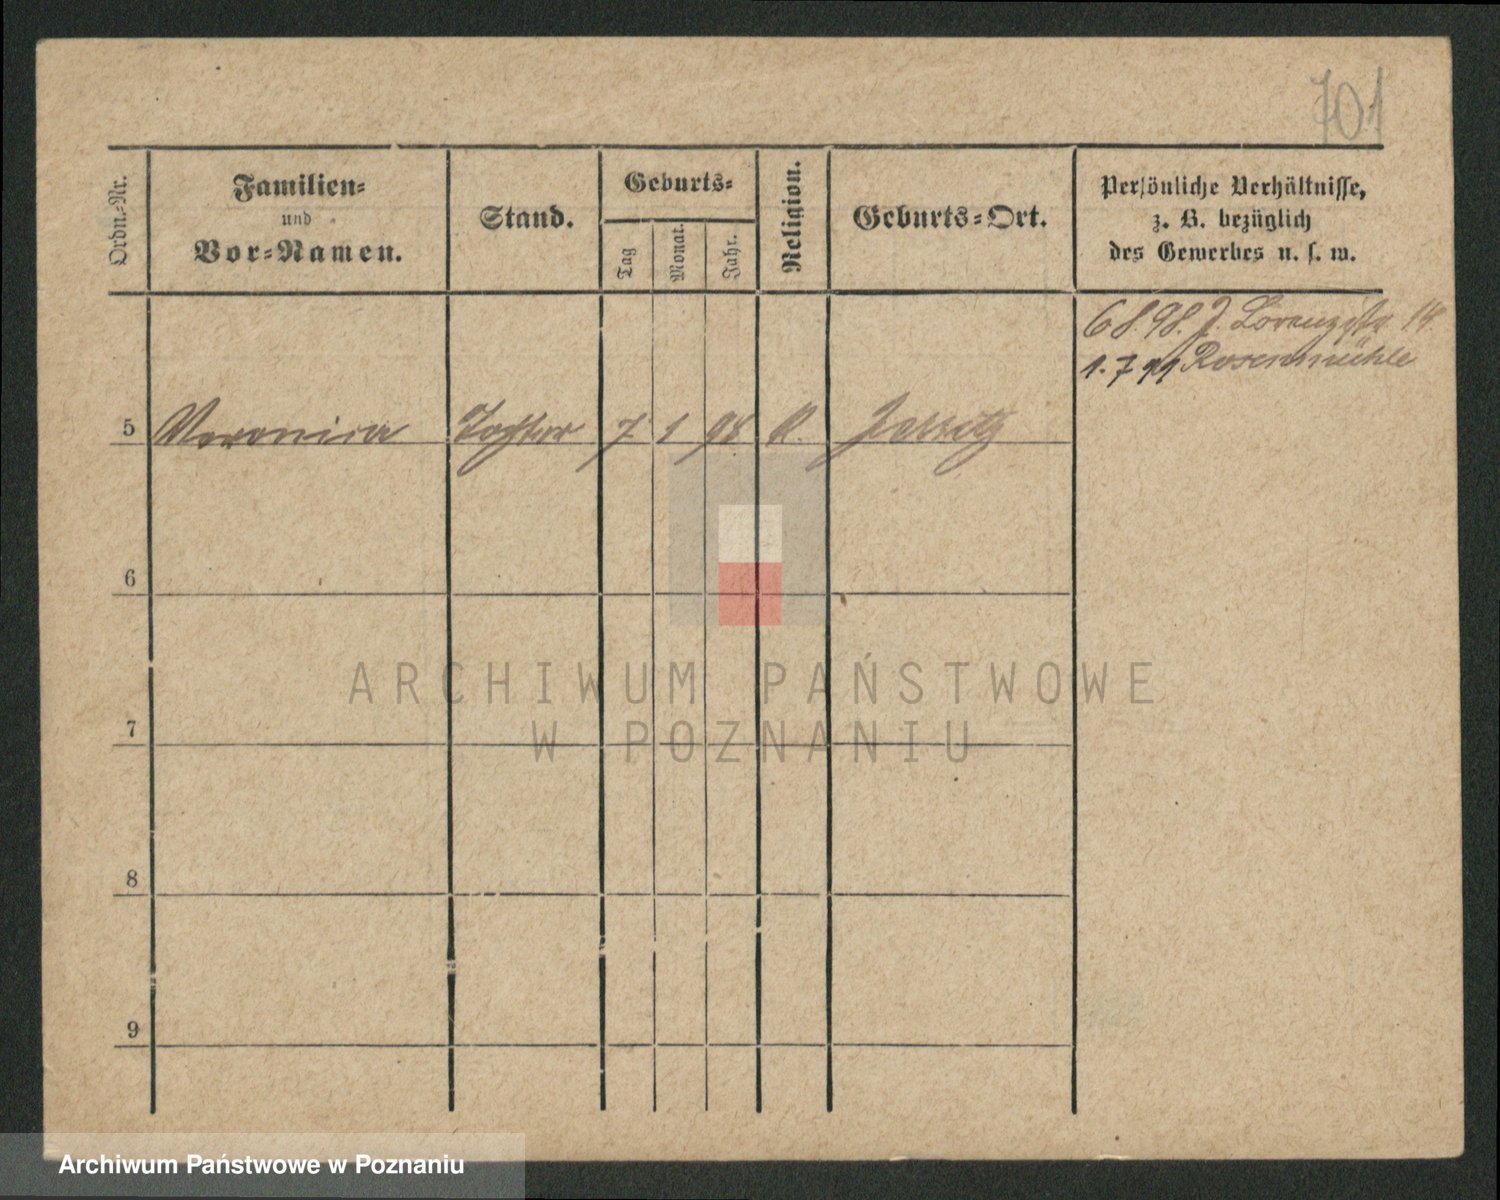 701
Ordn.-Nr.
Familien-
und
Vor-Namen.
Stand.
Geburts-
Tag
Monat.
Jahr.
Religion.
Geburts-Ort.
Persönliche Verhältnisse,
z. B. bezüglich
des Gewerbes u. s. w.
6 8. 98. J. Lorenzstr. 14.
1. 7 99 Rosenmühle
5 Veronica Tochter 7 1 98 K. Jersitz
6
7
8
9
ARCHIWUM PAŃSTWOWE
W POZNANIU
Archiwum Państwowe w Poznaniu